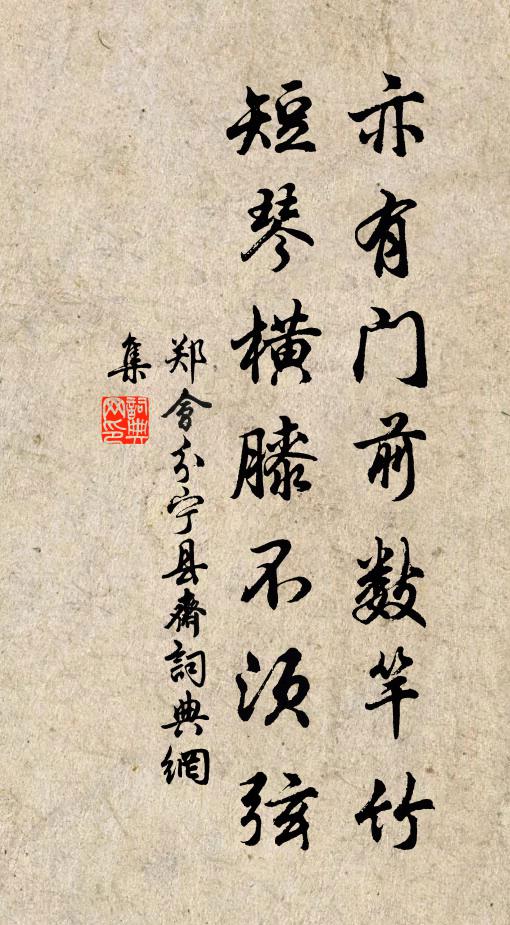 亦有门前数竿竹
短琴横膝不须弦
郑会分宁县斋词典網
集
詞典
网印